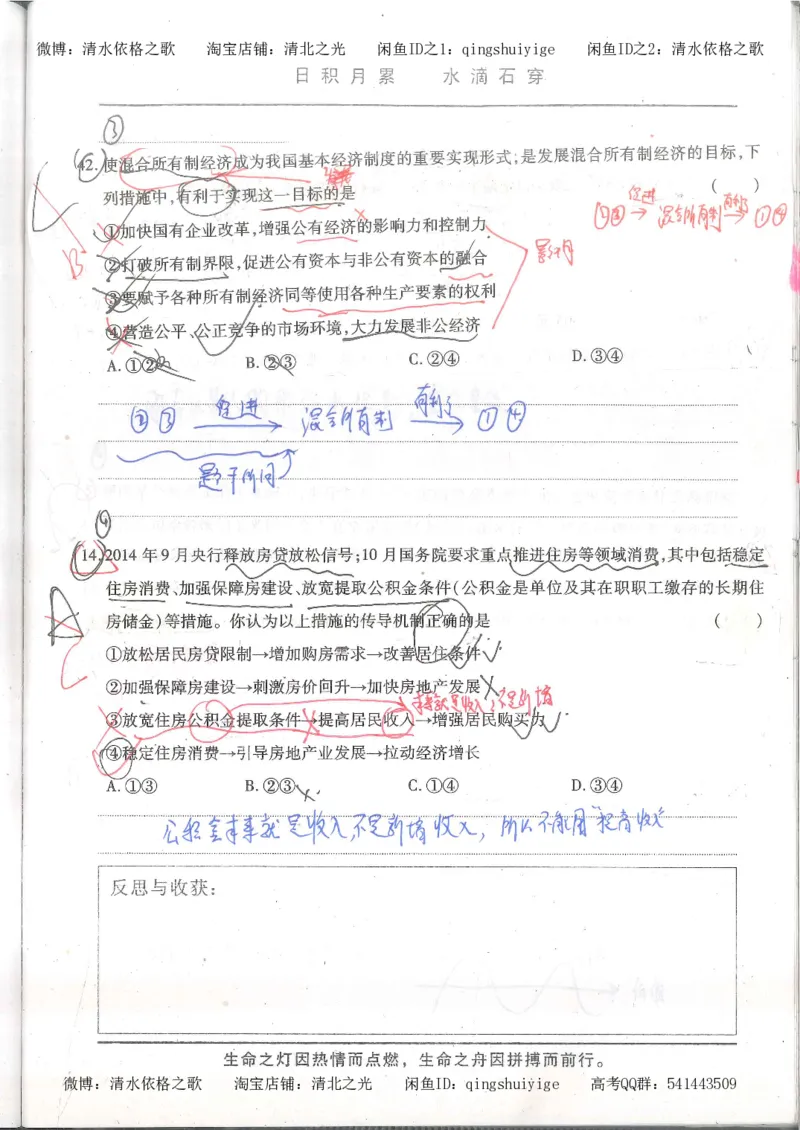 微博：清水依格之歌 淘宝店铺：清北之光 闲鱼ID之1：qingshuiyige 闲鱼ID之2：清水依格之歌
日积月累 水滴石穿
③
42.使混合所有制经济成为我国基本经济制度的重要实现形式;是发展混合所有制经济的目标,下
列措施中,有利于实现这一目标的是 ( )
②③ 促进→ 混合所有制 有利于→ ①④
①加快国有企业改革,增强公有经济的影响力和控制力
B
②打破所有制界限,促进公有资本与非公有资本的融合
③要赋予各种所有制经济同等使用各种生产要素的权利
④营造公平、公正竞争的市场环境,大力发展非公经济
A.①② B.②③ C.②④ D.③④
②③ 促进→ 混合所有制 有利于→ ①④
题干所问
④
14.2014年9月央行释放房贷放松信号;10月国务院要求重点推进住房等领域消费,其中包括稳定
住房消费、加强保障房建设、放宽提取公积金条件(公积金是单位及其在职职工缴存的长期住
房储金)等措施。你认为以上措施的传导机制正确的是 ( )
A
C
①放松居民房贷限制→增加购房需求→改善居住条件
②加强保障房建设→刺激房价回升→加快房地产发展
本来就是收入不是新增
③放宽住房公积金提取条件→提高居民收入→增强居民购买力
④稳定住房消费→引导房地产业发展→拉动经济增长
A.①③ B.②③ C.①④ D.③④
公积金本来就是收入,不是新增收入，所以不能用"提高收入"
反思与收获：
生命之灯因热情而点燃，生命之舟因拼搏而前行。
微博：清水依格之歌 淘宝店铺：清北之光 闲鱼ID：qingshuiyige 高考QQ群：541443509